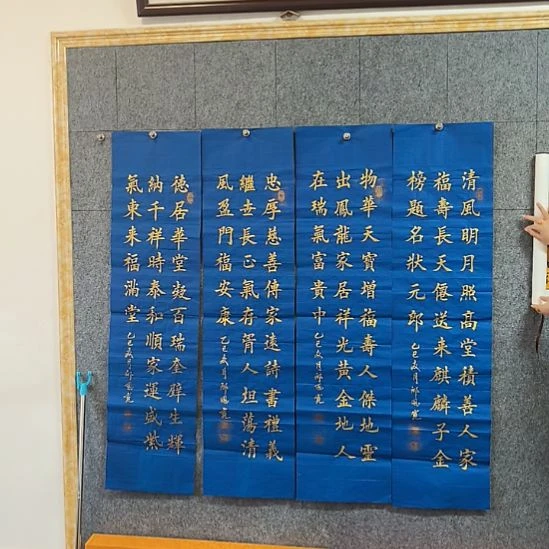 清風明月照高堂積善人家
福壽長天僊送來麒麟子金
榜題名狀元郎
乙巳
物華天寶增福壽人傑地靈
出鳳龍家居祥光黃金地人
在瑞氣富貴中
乙巳
忠厚慈善傳家遠詩書禮義
繼世長正氣存胥人坦蕩清
風盈門福安康
乙巳
德居華堂凝百瑞奎壁生輝
納千祥時泰和順家運盛紫
氣東來福滿堂
乙巳